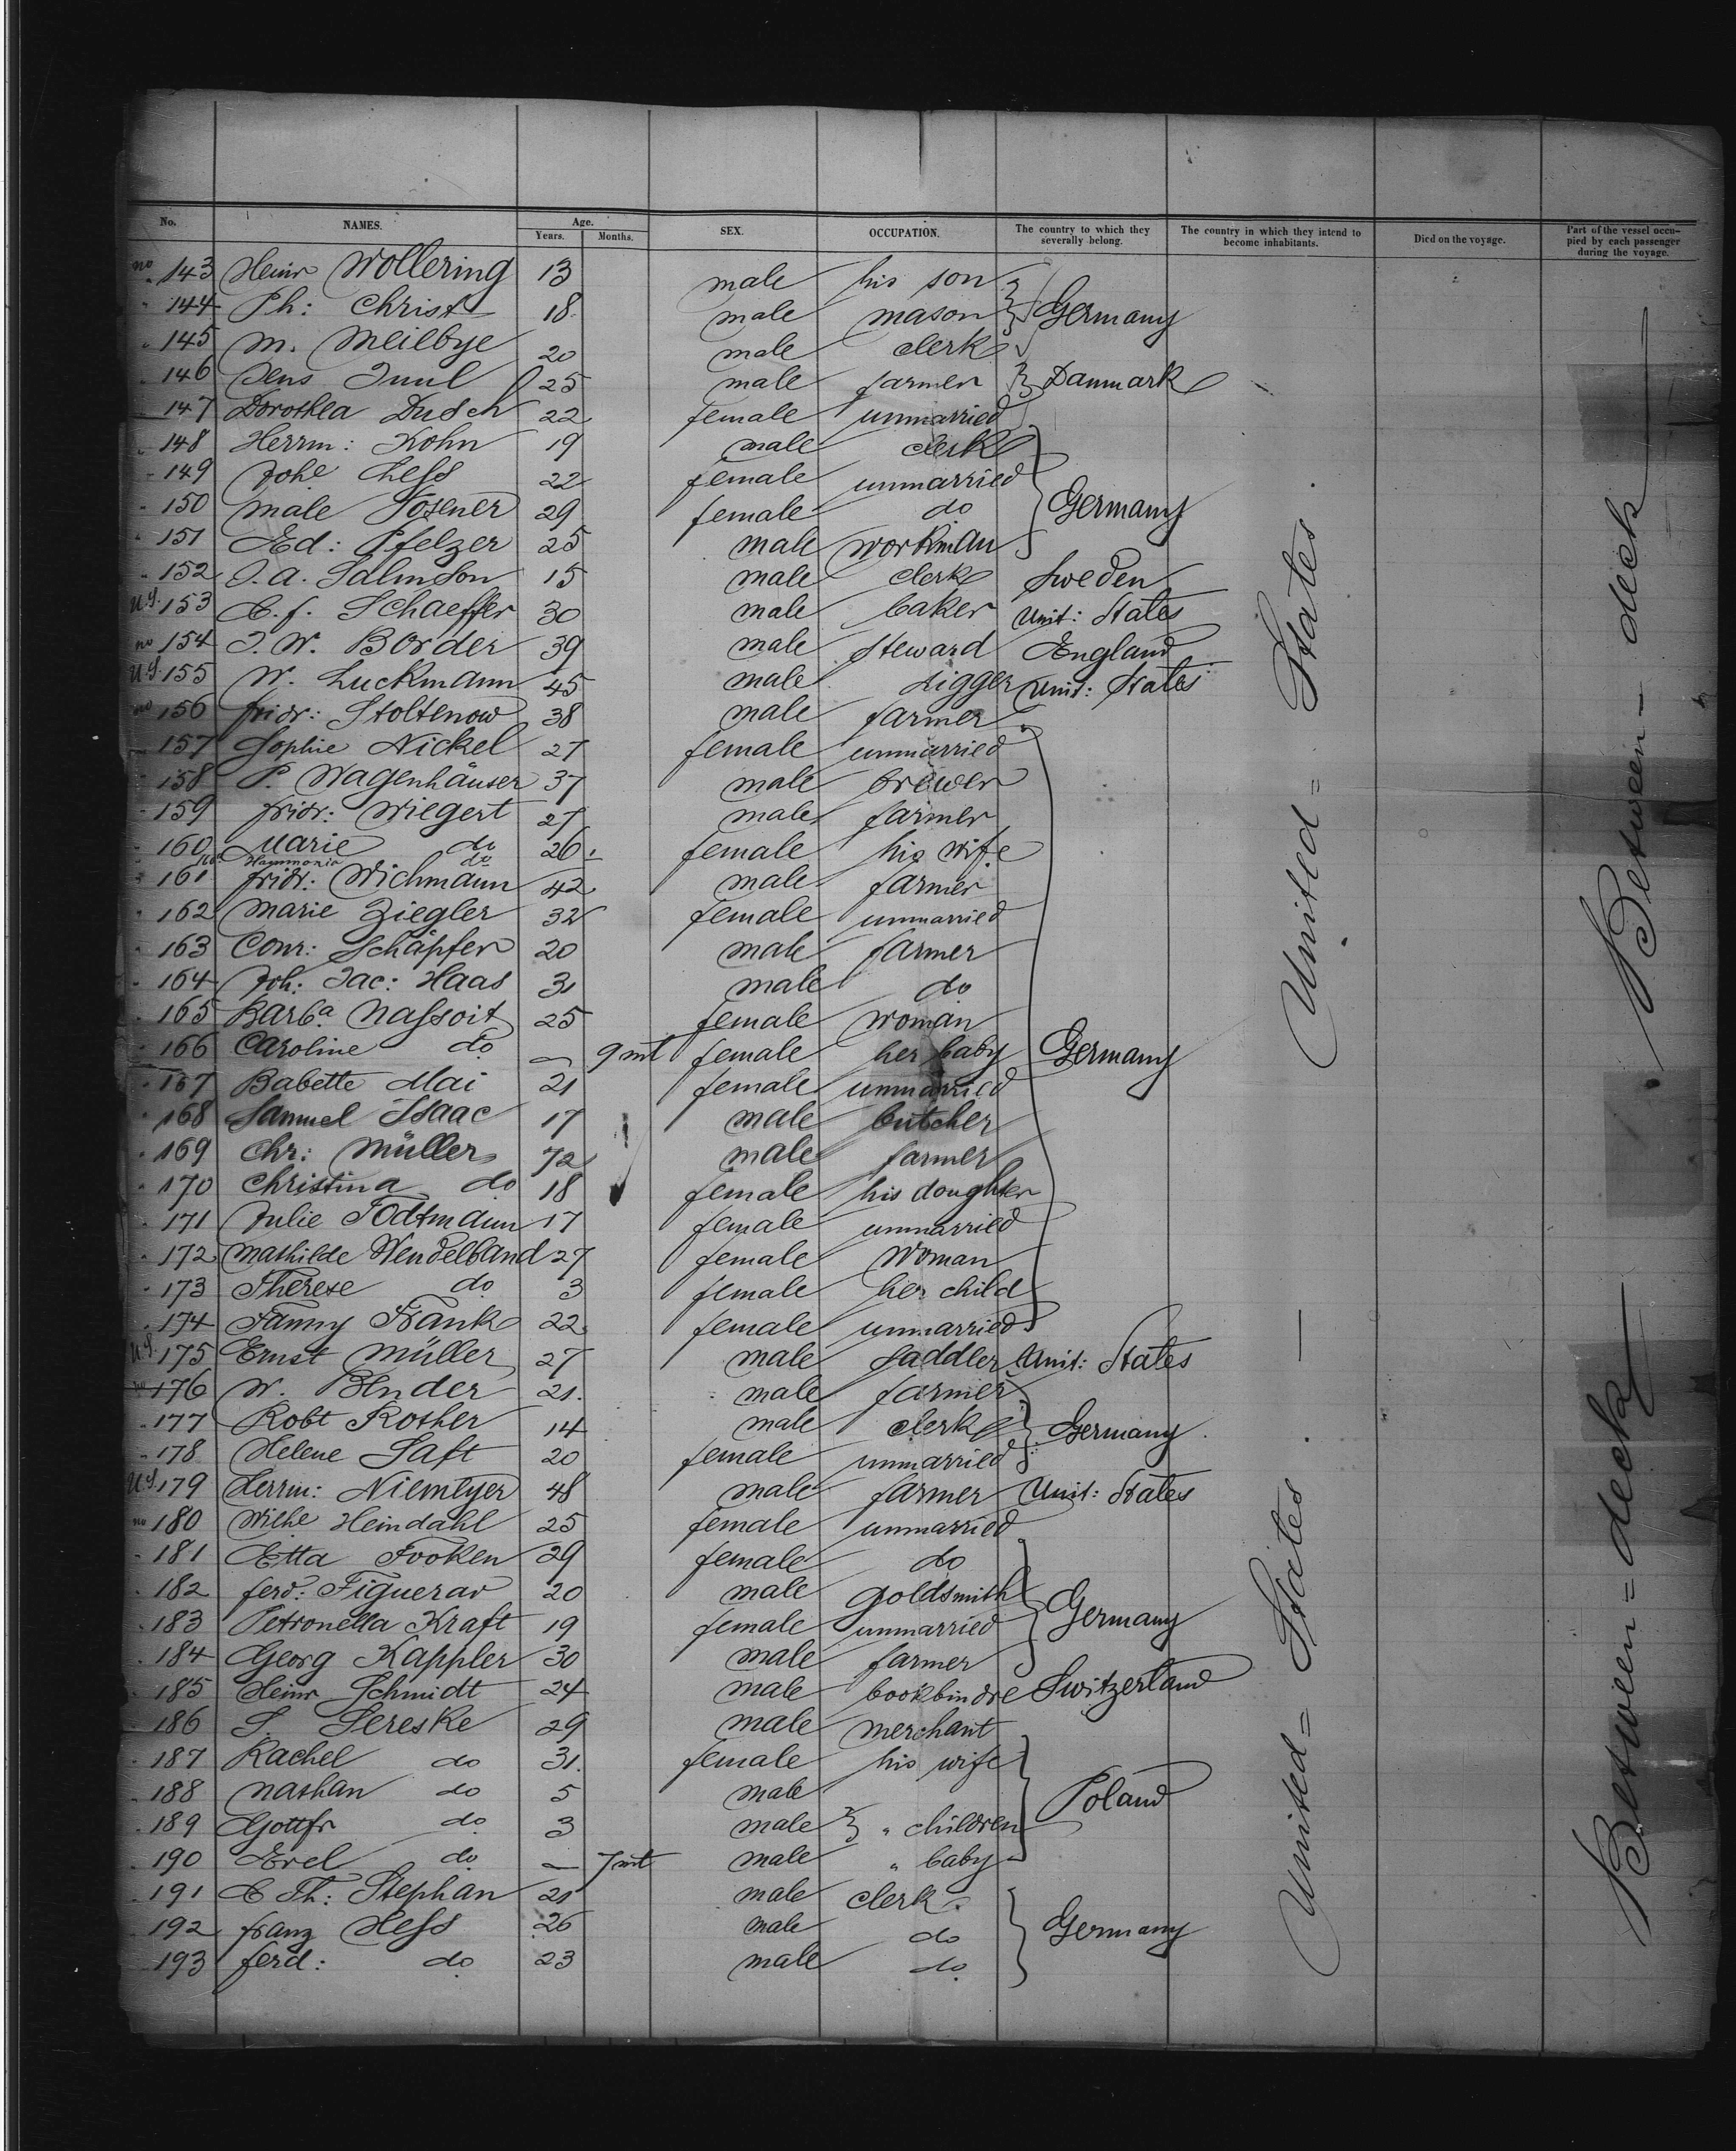 No. NAMES. Age. Years. Months. SEX. OCCUPATION. The country to which they severally belong. The country in which they intend to become inhabitants. Died on the voyage. Part of the vessel occupied by each passenger during the voyage.
no 143 Heinr Wollering 13 male his son
144 Ph: Christ 18 male mason Germany
145 M. Meilbye 20 male clerk
146 Jens Juul 25 male farmer Danmark
147 Dorothea Dusch 22 female unmarried
148 Herrm: Kohn 19 male clerk
149 Johe Hess 22 female unmarried
150 Male Posener 29 female do Germany
151 Ed: Pfelzer 25 male workman
152 J. A. Salmson 15 male clerk Sweden
U.S. 153 C. f. Schaeffer 30 male baker Unit: States
no 154 J. W. Border 39 male steward England
U.S. 155 W. Luckmann 45 male digger Unit: States
no 156 fridr: Stoltenow 38 male farmer
157 Sophie Nickel 27 female unmarried
158 P. Wagenhäuser 37 male brewer
159 fridr: Wiegert 27 male farmer
160 Marie do 26 female his wife
Hammonia do
161 fridr: Wichmann 42 male farmer
162 Marie Ziegler 32 female unmarried
163 Conr: Schäpfer 20 male farmer
164 Joh: Jac: Haas 31 male do
165 Barba Nassoit 25 female woman
166 Caroline do — 9 mt female her baby Germany
167 Babette Mai 21 female unmarried
168 Samuel Isaac 17 male butcher
169 Chr: Müller 72 male farmer
170 Christina do 18 female his doughter
171 Julie Todtmann 17 female unmarried
172 Mathilde Wendelband 27 female Woman
173 Therese do 3 female her child
174 Fanny Frank 22 female unmarried
U.S. 175 Ernst Müller 27 male saddler Unit: States
no 176 W. Bender 21 male farmer
177 Robt Rother 14 male clerk Germany
178 Helene Saft 20 female unmarried
U.S. 179 Herrm: Niemeyer 48 male farmer Unit: States
no 180 Wilhe Heindahl 25 female unmarried
181 Etta Fooken 29 female do
182 ferd: Figuerar 20 male goldsmith
183 Petronella Kraft 19 female unmarried Germany
184 Georg Kappler 30 male farmer
185 Heinr Schmidt 24 male bookbindre Switzerland
186 S. Sereske 29 male merchant
187 Rachel do 31 female his wife
188 Nathan do 5 male Poland
189 Gottfr do 3 male " children
190 Erel do — 7 mt male " baby
191 C Th: Stephan 21 male clerk
192 franz Hess 26 male do Germany
193 ferd: do 23 male do
United = States
United = States
Between - deck
Between = deck